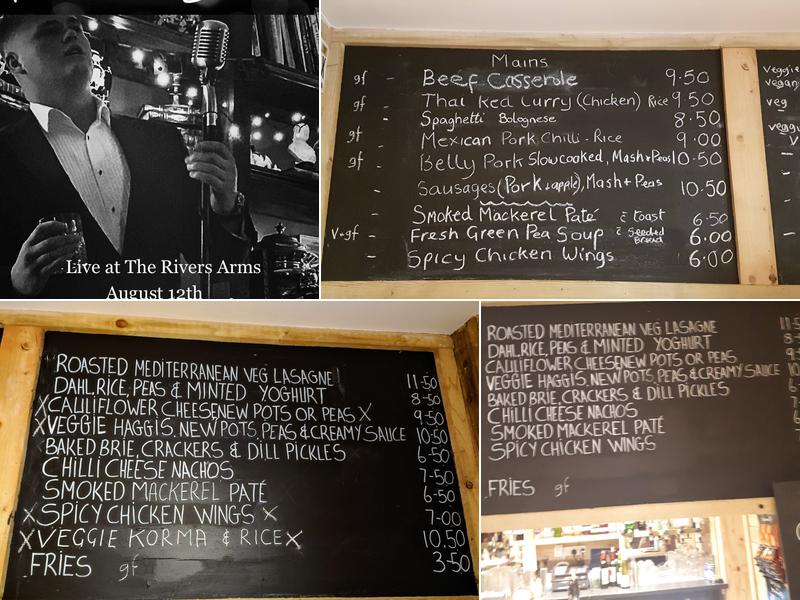 Live at The Rivers Arms
August 12th
Mains
gf - Beef Casserole 9.50
gf - Thai Red Curry (Chicken) Rice 9.50
- Spaghetti Bolognese 8.50
gf Mexican Pork Chilli - Rice 9.00
gf - Belly Pork Slowcooked, Mash + Peas 10.50
- Sausages (Pork + apple), Mash + Peas 10.50
- Smoked Mackerel Paté c̄ toast 6.50
V+gf - Fresh Green Pea Soup c̄ Seeded Bread 6.00
- Spicy Chicken Wings 6.00
Veggie
vegan
veg
ROASTED MEDITERRANEAN VEG LASAGNE 11.50
DAHL, RICE, PEAS & MINTED YOGHURT 8-50
X CAULIFLOWER CHEESE NEW POTS OR PEAS X 9.50
X VEGGIE HAGGIS. NEW POTS, PEAS & CREAMY SAUCE 10.50
BAKED BRIE, CRACKERS & DILL PICKLES 6-50
CHILLI CHEESE NACHOS 7-50
SMOKED MACKEREL PATÉ 6-50
X SPICY CHICKEN WINGS X 7-00
X VEGGIE KORMA & RICE X 10.50
FRIES gf 3-50
ROASTED MEDITERRANEAN VEG LASAGNE
DAHL, RICE, PEAS & MINTED YOGHURT
CAULIFLOWER CHEESE NEW POTS OR PEAS
VEGGIE HAGGIS. NEW POTS, PEAS & CREAMY SAUCE
BAKED BRIE, CRACKERS & DILL PICKLES
CHILLI CHEESE NACHOS
SMOKED MACKEREL PATÉ
SPICY CHICKEN WINGS
FRIES gf